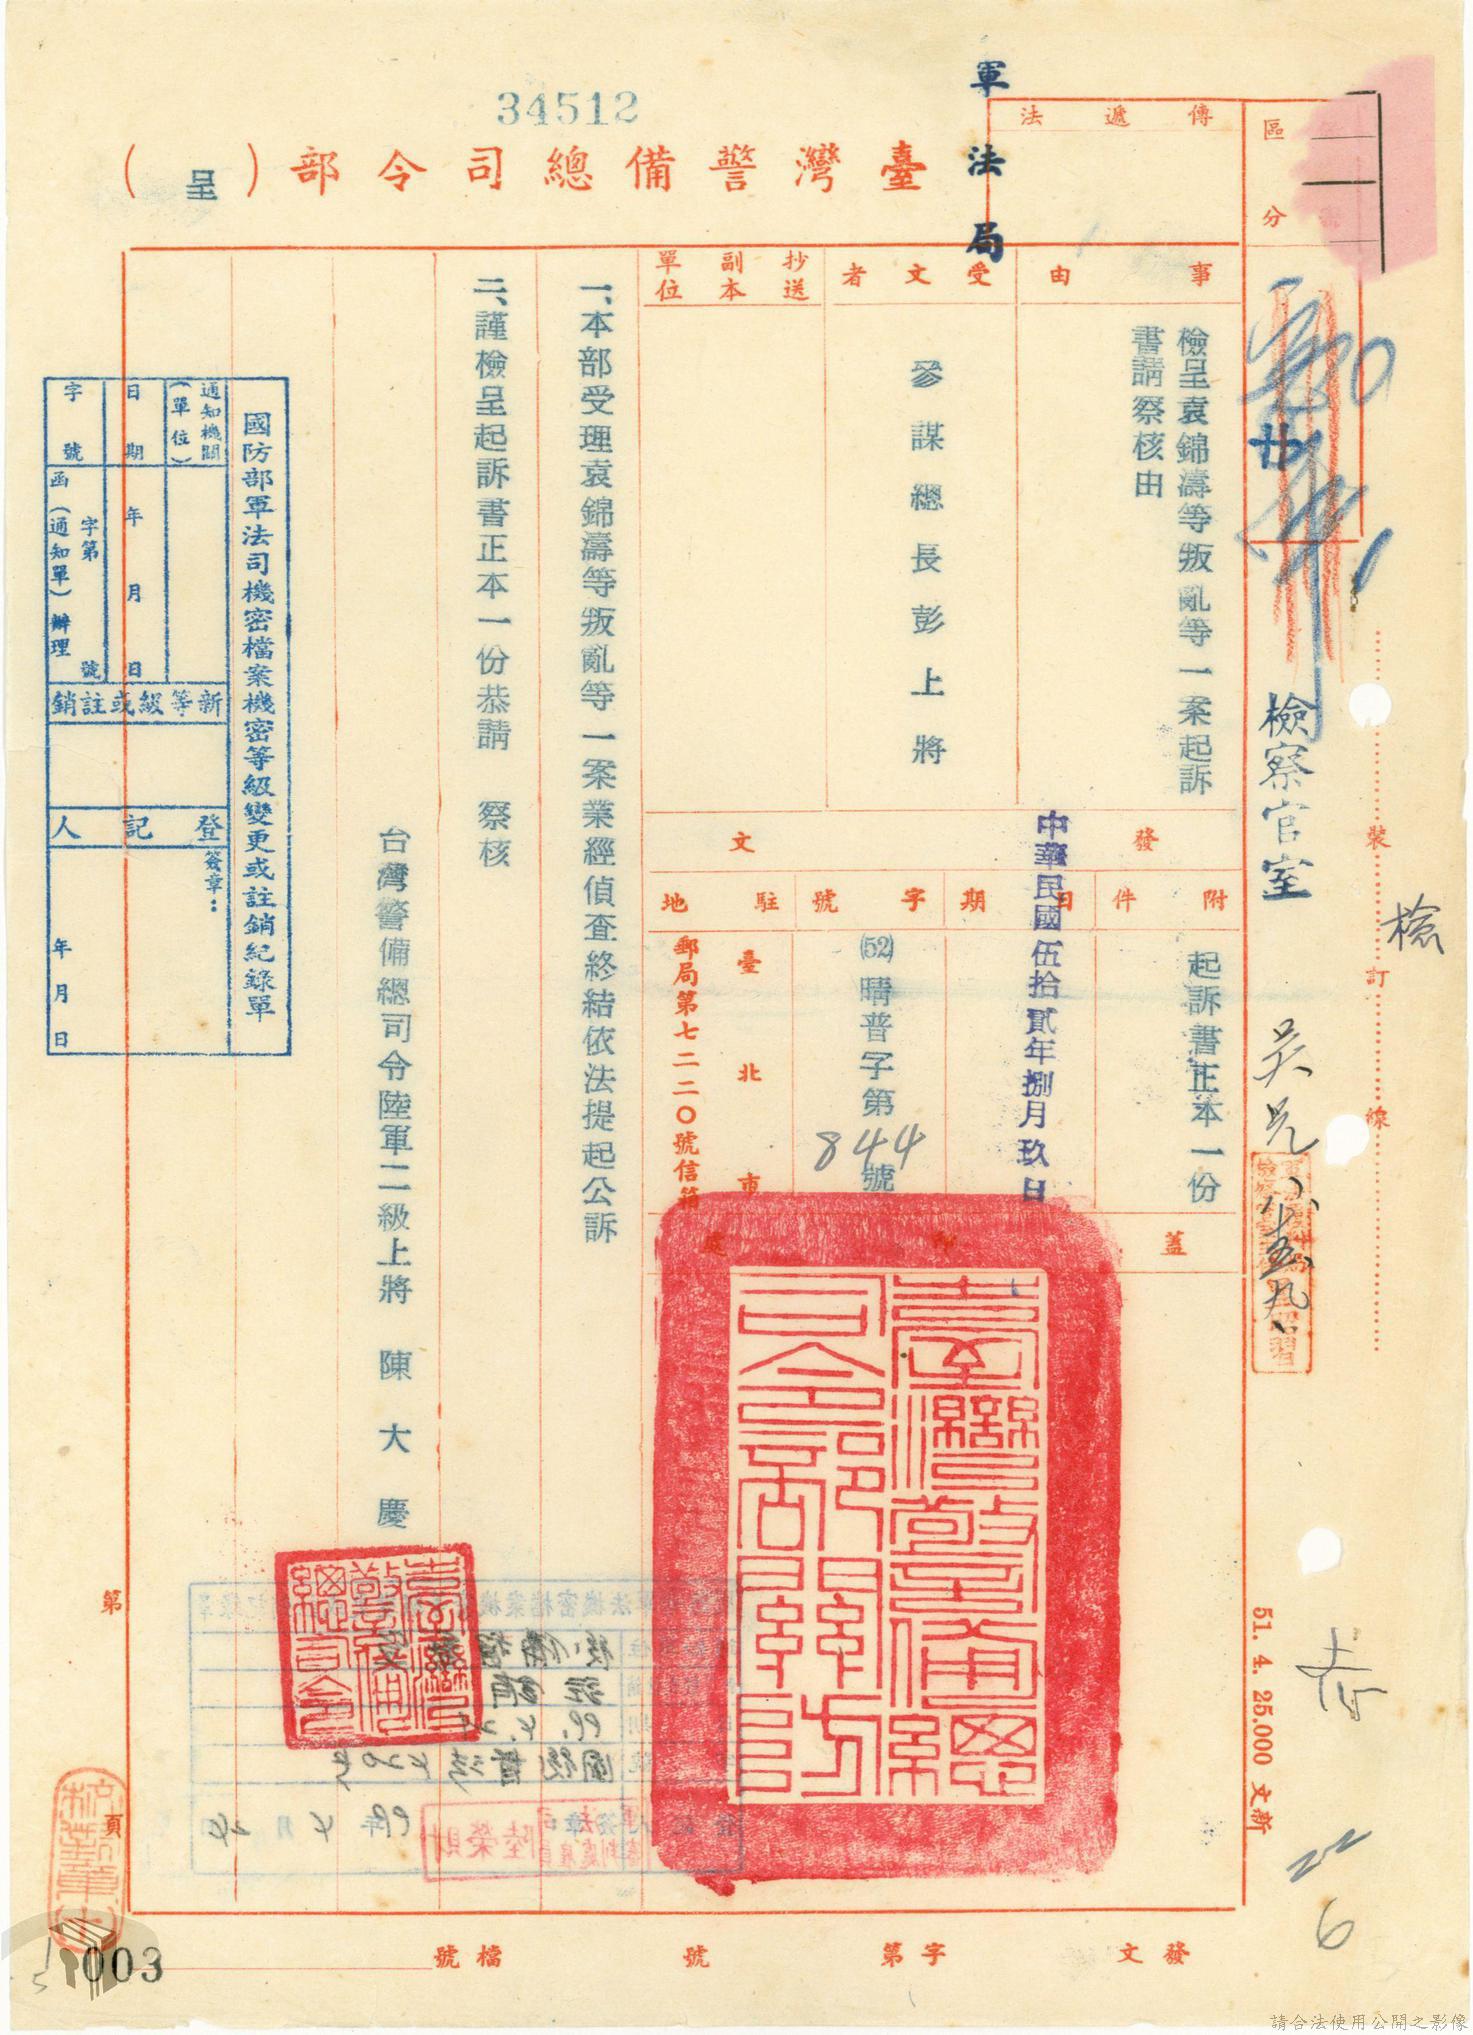 34512
軍法局
臺灣警備總司令部（呈）
傳遞法
區分
事由
檢呈袁錦濤等叛亂等一案起訴
書請察核由
受文者
參謀總長彭上將
抄送
副本
單位
發文
附件
起訴書正本一份
日期
中華民國伍拾貳年捌月玖日
字號
(52)晴普字第844號
駐地
臺北市
郵局第七二二〇號信箱
蓋印處
臺灣警備總司令部關防
一、本部受理袁錦濤等叛亂等一案業經偵查終結依法提起公訴
二、謹檢呈起訴書正本一份恭請　察核
台灣警備總司令陸軍二級上將　陳大慶
臺灣警備總司令
國防部軍法司機密檔案機密等級變更或註銷紀錄單
通知機關
（單位）
日期
年月日
字號
字第號
函（通知單）辦理
新等級或註銷
登記人
簽章：
年月日
檢察官室
檢
裝訂線
51. 4. 25.000 文新
22
6
第頁
發文
字第
號
檔號
003
請合法使用公開之影像